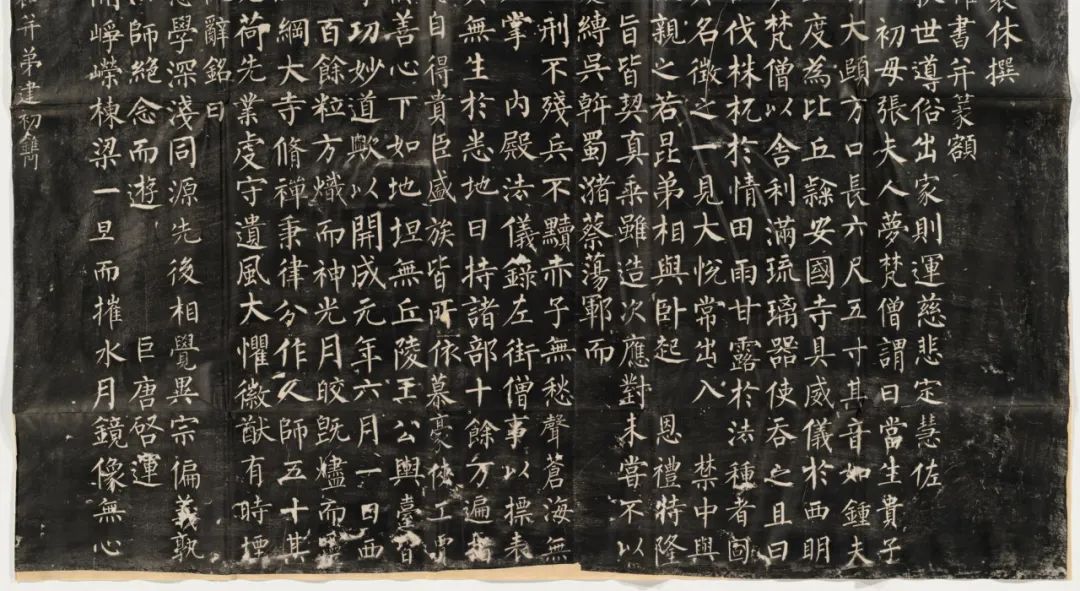 休撰
書并篆額
世導俗出家則運慈悲定慧佐
初母張夫人夢梵僧謂曰當生貴子
大頤方口長六尺五寸其音如鍾夫
度為比丘隸安國寺具威儀於西明
梵僧以舍利滿琉璃器使吞之且曰
伐株杌於情田雨甘露於法種者固
名徵之一見大悅常出入 禁中與
親之若昆弟相與臥起 恩禮特隆
旨皆契真乘雖造次應對未嘗不以
縛吳斡蜀瀦蔡蕩鄆而
刑不殘兵不黷赤子無愁聲蒼海無
掌 內殿法儀錄左街僧事以標表
無生於悉地日持諸部十餘万遍指
自得貴臣盛族皆所依慕豪俠工賈
善心下如地坦無丘陵王公輿臺皆
功妙道歟以開成元年六月一日西
百餘粒方熾而神光月皎既燼而靈
綱大寺脩禪秉律分作人師五十其
荷先業虔守遺風大懼徽猷有時堙
辭銘曰
學深淺同源先後相覺異宗偏義孰
師絕念而遊 巨唐啓運
崢嶸棟梁一旦而摧水月鏡像無心
并弟建初鐫